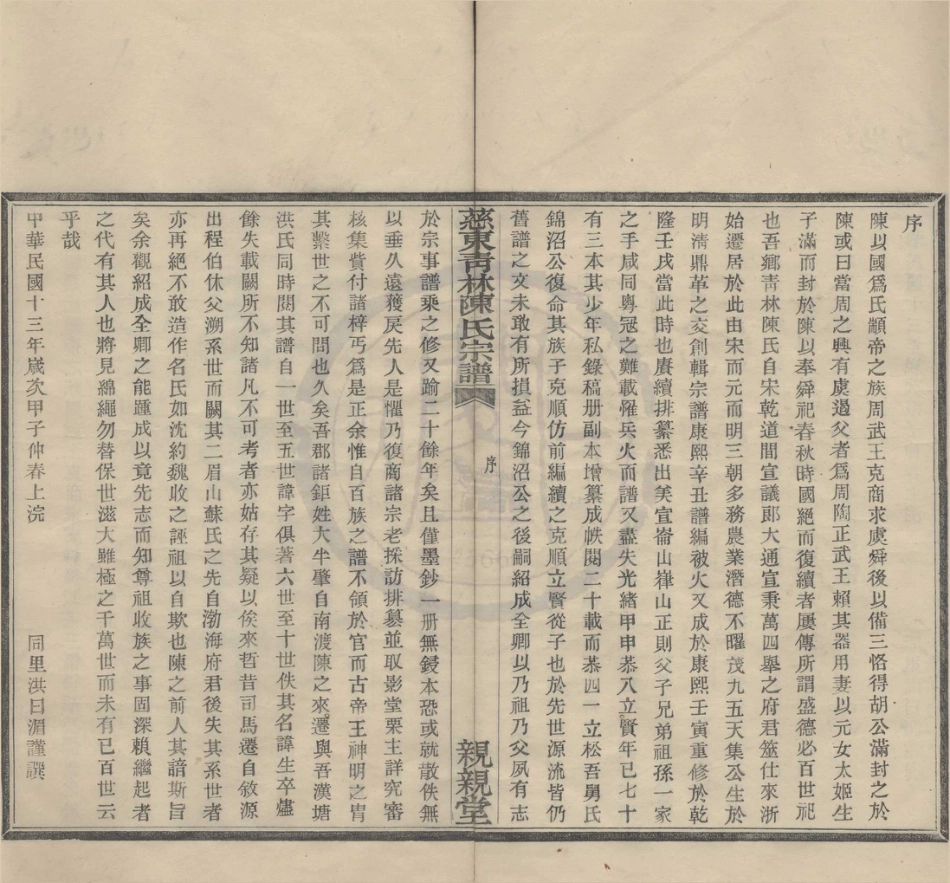 序
陳以國爲氏顓帝之族周武王克商求虞舜後以備三恪得胡公滿封之於
陳或曰當周之興有虞遏父者爲周陶正武王賴其器用妻以元女太姬生
子滿而封於陳以奉舜祀春秋時國絕而復續者屢傳所謂盛德必百世祀
也吾鄉靑林陳氏自宋乾道間宣議郎大通宣秉萬四舉之府君筮仕來浙
始遷居於此由宋而元而明三朝多務農業潛德不曜茂九五天集公生於
明淸鼎革之交創輯宗譜康熙辛丑譜編被火又成於康熙壬寅重修於乾
隆壬戌當此時也賡續排纂悉出美宣崙山嵂山正則父子兄弟祖孫一家
之手咸同粵冦之難載罹兵火而譜又盡失光緒甲申恭八立賢年已七十
有三本其少年私錄稿册副本增纂成帙閱二十載而恭四一立松吾舅氏
錦沼公復命其族子克順仿前編續之克順立賢從子也於先世源流皆仍
舊譜之文未敢有所損益今錦沼公之後嗣紹成全卿以乃祖乃父夙有志
慈東靑林陳氏宗譜 序 親親堂
於宗事譜乘之修又踰二十餘年矣且僅墨鈔一册無鋟本恐或就散佚無
以垂久遠獲戾先人是懼乃復商諸宗老採訪排纂並取影堂栗主詳究審
核集貲付諸梓丐爲是正余惟自百族之譜不領於官而古帝王神明之胄
其繫世之不可問也久矣吾郡諸鉅姓大半肇自南渡陳之來遷與吾漢塘
洪氏同時閱其譜自一世至五世諱字俱著六世至十世佚其名諱生卒燼
餘失載闕所不知諸凡不可考者亦姑存其疑以俟來哲昔司馬遷自敘源
出程伯休父溯系世而闕其二眉山蘇氏之先自渤海府君後失其系世者
亦再絕不敢造作名氏如沈約魏收之誣祖以自欺也陳之前人其諳斯旨
矣余觀紹成全卿之能踵成以竟先志而知尊祖收族之事固深賴繼起者
之代有其人也將見綿繩勿替保世滋大雖極之千萬世而未有已百世云
乎哉
中華民國十三年歲次甲子仲春上浣 同里洪日湄謹譔